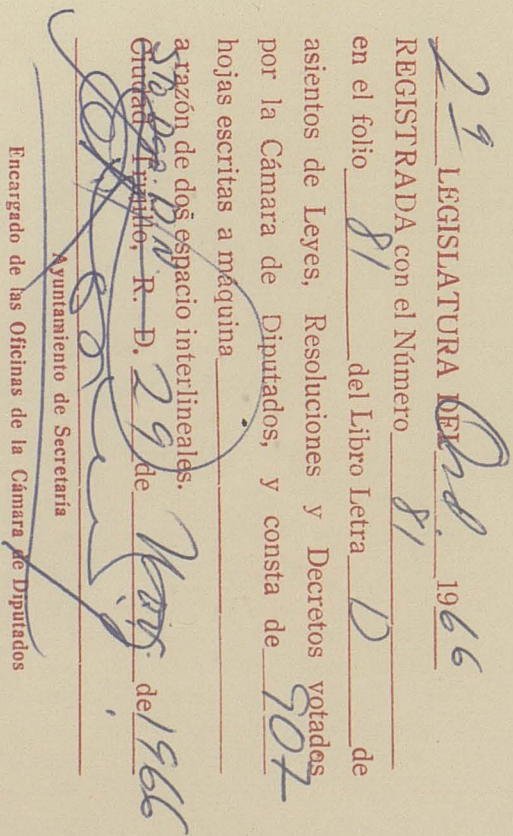 2ª LEGISLATURA DEL Ord. 1966
REGISTRADA con el Número 81
en el folio 81 del Libro Letra D de
asientos de Leyes, Resoluciones y Decretos votados
por la Cámara de Diputados, y consta de 907
hojas escritas a máquina
a razón de dos espacio interlineales.
Sto. Dgo. D.N.
Ciudad Trujillo, R. D. 29 de Nov. de 1966
Ayuntamiento de Secretaría
Encargado de las Oficinas de la Cámara de Diputados